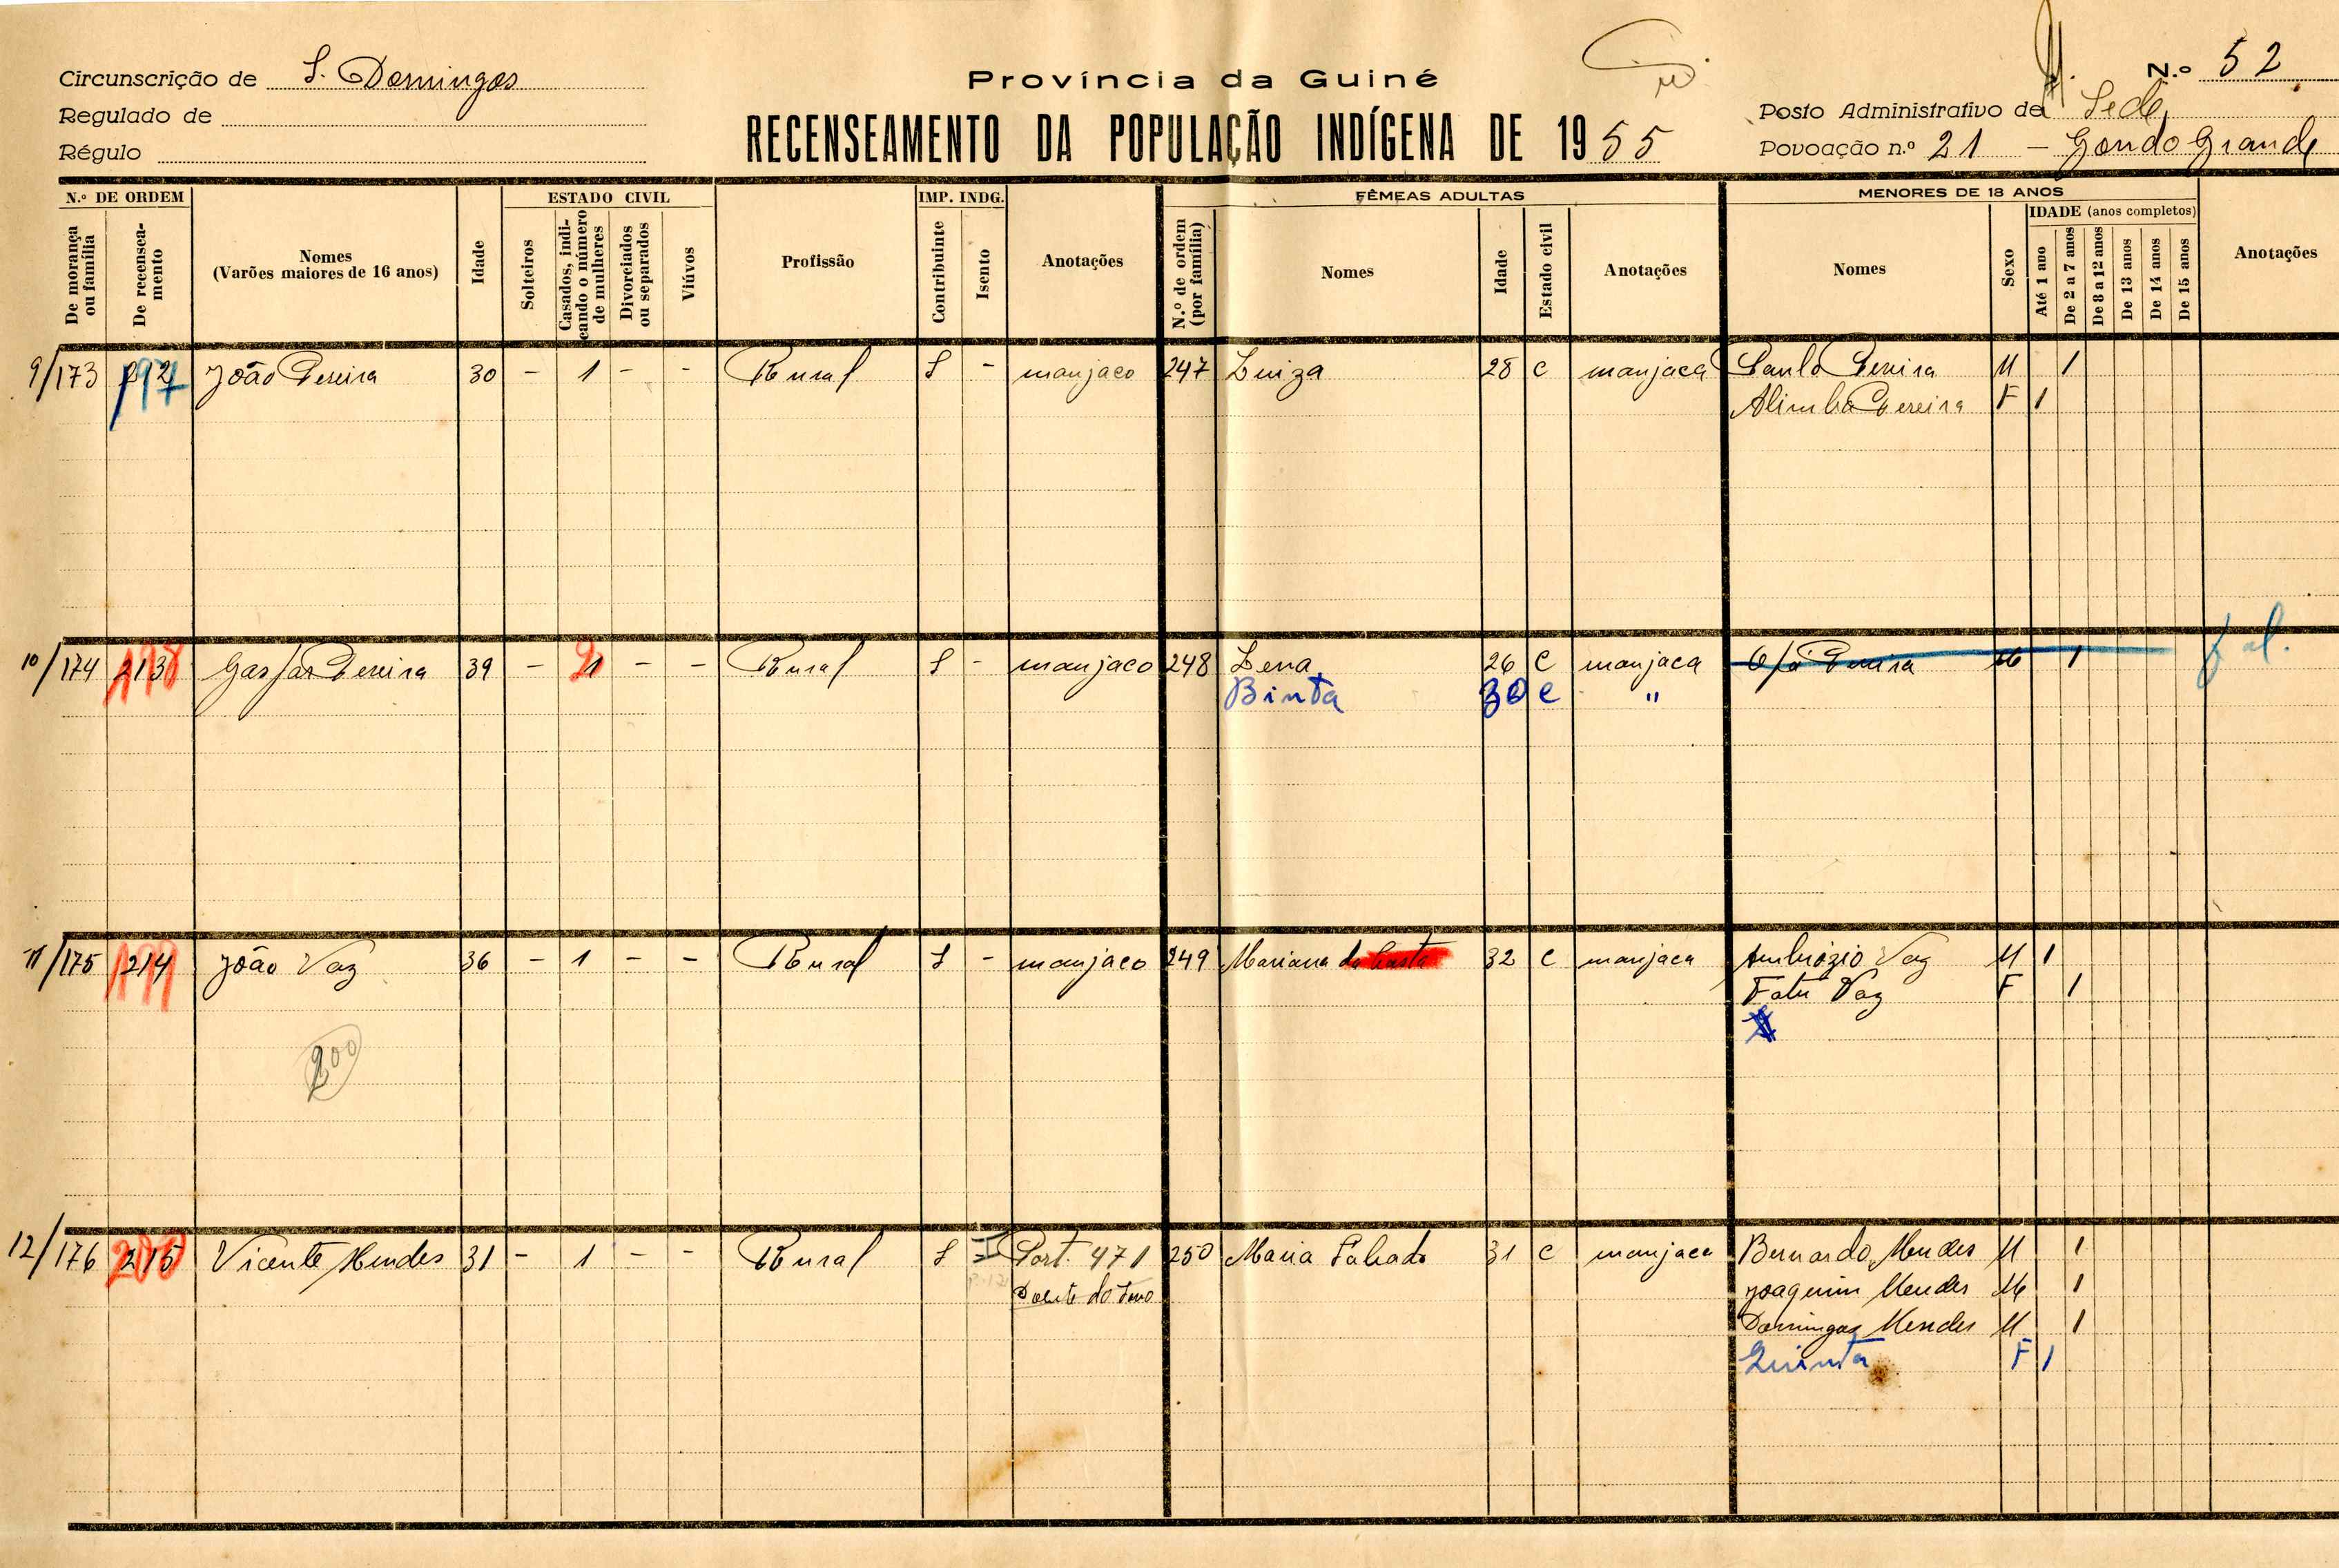 Circunscrição de S. Domingos
Regulado de
Régulo
Província da Guiné
RECENSEAMENTO DA POPULAÇÃO INDÍGENA DE 1955
N.º 52
Posto Administrativo de Sede
Povoação n.º 21 – Gondo Grande
N.º DE ORDEM
De morança ou família
De recenseamento
Nomes
(Varões maiores de 16 anos)
Idade
ESTADO CIVIL
Solteiros
Casados, indicando o número de mulheres
Divorciados ou separados
Viúvos
Profissão
IMP. INDG.
Contribuinte
Isento
Anotações
FÊMEAS ADULTAS
N.º de ordem (por família)
Nomes
Idade
Estado civil
Anotações
MENORES DE 18 ANOS
Nomes
Sexo
IDADE (anos completos)
Até 1 ano
De 2 a 7 anos
De 8 a 12 anos
De 13 anos
De 14 anos
De 15 anos
Anotações
9/173 197 João Pereira 30 – 1 – – Rural S – manjaco 247 Luiza 28 C manjaca Paulo Pereira M 1
Alimba Pereira F 1
10/174 213 198 Gaspar Pereira 39 – 2 – – Rural S – manjaco 248 Lena 26 C manjaca Pereira M 1 fal.
Binta 30 C "
11/175 214 199 João Vaz 36 – 1 – – Rural S – manjaco 249 Mariana da Costa 32 C manjaca Ambrózio Vaz M 1
Fatu Vaz F 1
200
12/176 215 200 Vicente Mendes 31 – 1 – – Rural S Port. 471 250 Maria 31 C manjaca Bernardo Mendes M 1
Joaquim Mendes M 1
Domingos Mendes M 1
Quinta F 1